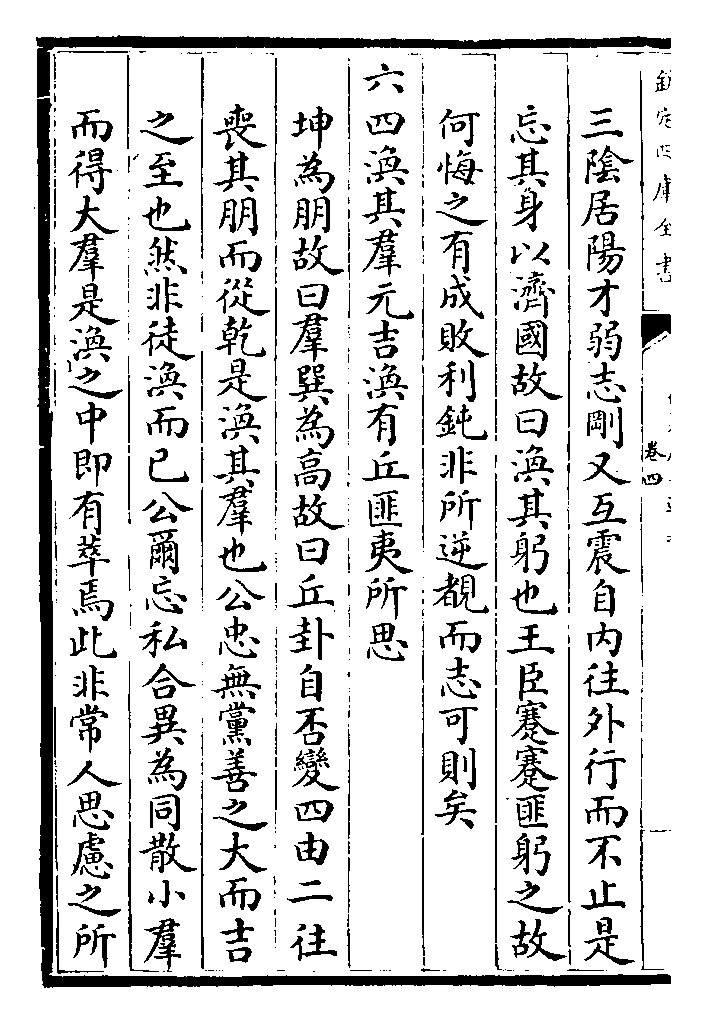 欽定四庫全書
卷四
三陰居陽才弱志剛又互震自內往外行而不止是
忘其身以濟國故曰渙其躬也王臣蹇蹇匪躬之故
何悔之有成敗利鈍非所逆覩而志可則矣
六四渙其羣元吉渙有丘匪夷所思
坤為朋故曰羣巽為高故曰丘卦自否變四由二往
喪其朋而從乾是渙其羣也公忠無黨善之大而吉
之至也然非徒渙而已公爾忘私合異為同散小羣
而得大羣是渙之中即有萃焉此非常人思慮之所